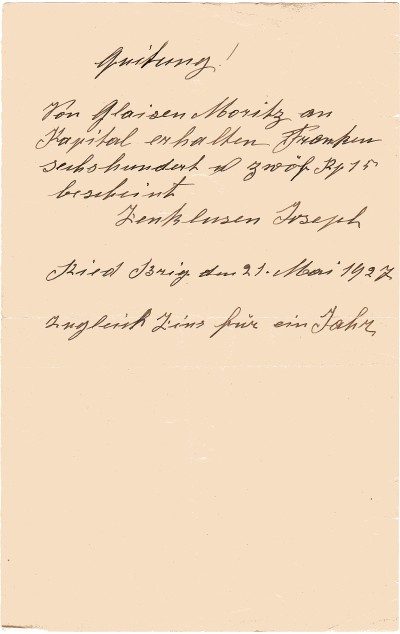 Quitung!
Von Glaisen Moritz an
Kapital erhalten Franken
sechshundert u zwöf Rp 15
bescheint
Zenklusen Joseph
Ried Brig den 21. Mai 1927
zugleich Zins für ein Jahr